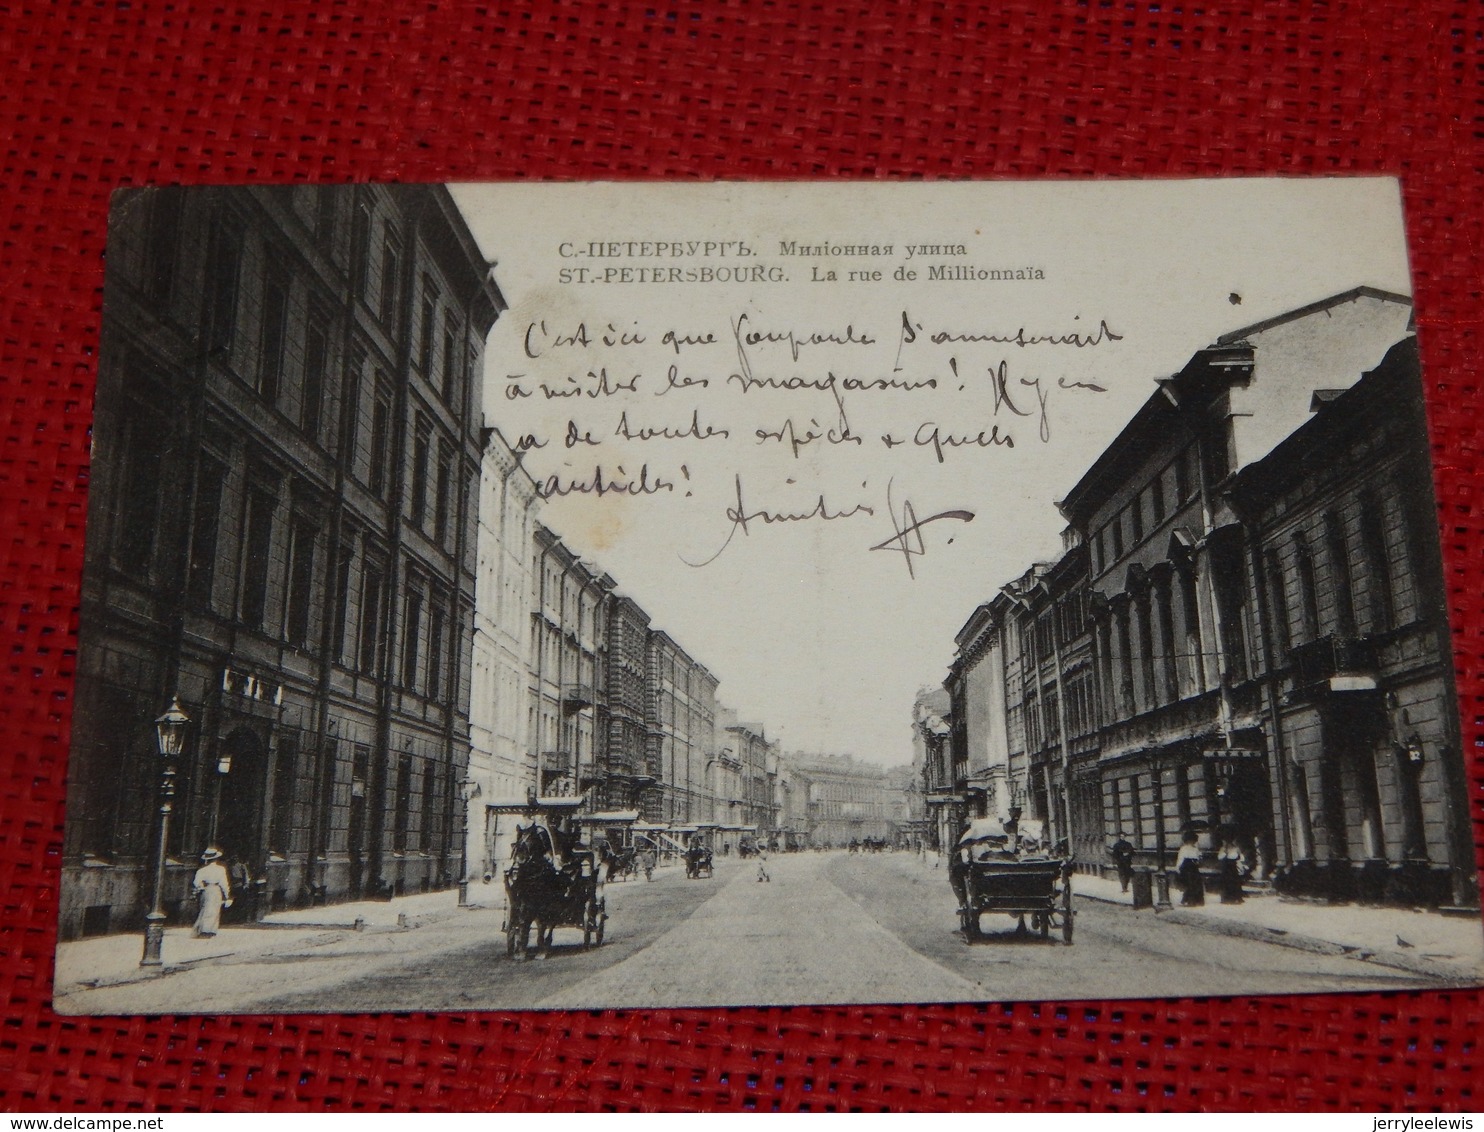 С.-ПЕТЕРБУРГЪ. Миліонная улица
ST.-PETERSBOURG. La rue de Millionnaïa
C'est ici que s'amuserait
à visiter les magasins! Il y en
a de toutes espèces & quels
articles!
Amitiés
delcampe.net
jerryleelewis